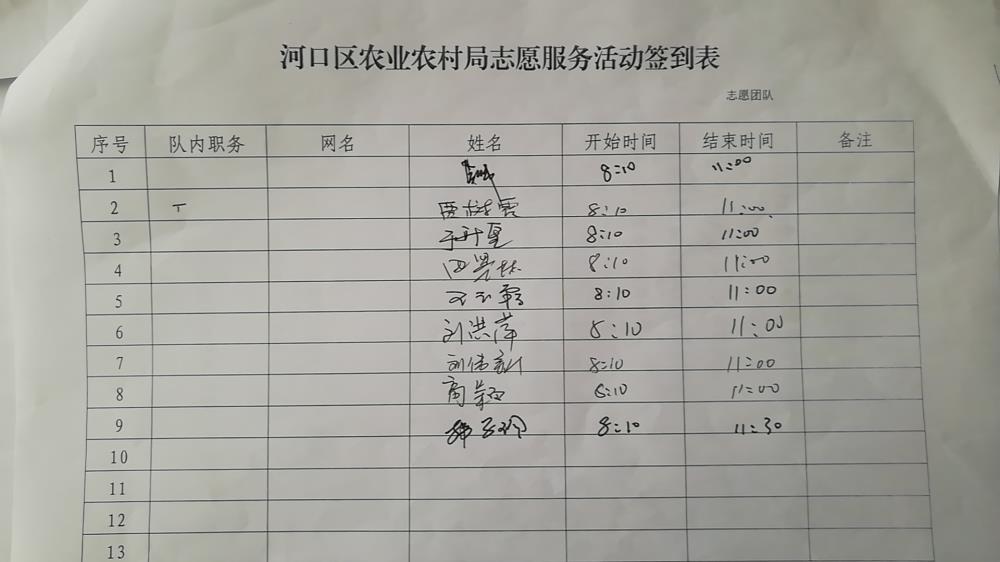 河口区农业农村局志愿服务活动签到表
志愿团队
序号 队内职务 网名 姓名 开始时间 结束时间 备注
1 8:10 11:00
2 8:10 11:00
3 8:10 11:00
4 8:10 11:00
5 8:10 11:00
6 刘洪萍 8:10 11:00
7 8:10 11:00
8 8:10 11:00
9 8:10 11:30
10
11
12
13